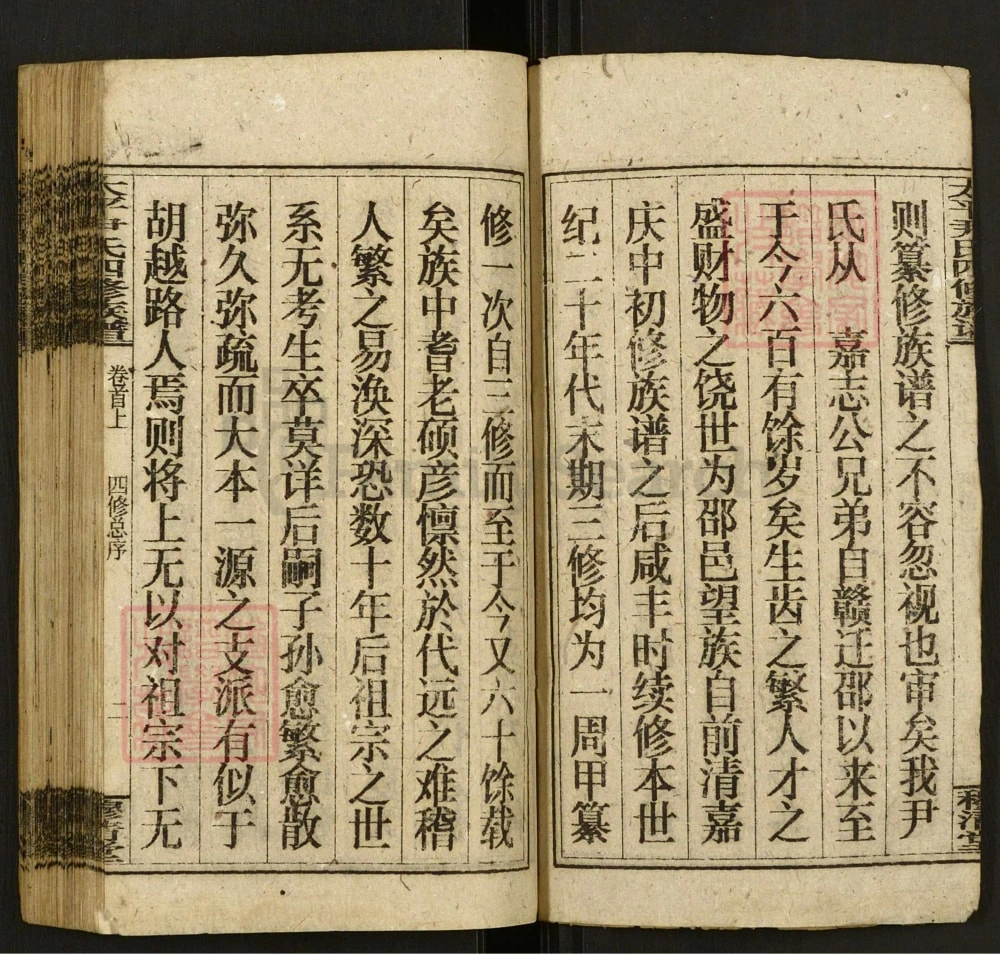 则纂修族谱之不容忽视也审矣我尹
氏从　嘉志公兄弟自赣迁邵以来至
于今六百有馀岁矣生齿之繁人才之
盛财物之饶世为邵邑望族自前清嘉
庆中初修族谱之后咸丰时续修本世
纪二十年代末期三修均为一周甲纂
修一次自三修而至于今又六十馀载
矣族中耆老硕彦懔然於代远之难稽
人繁之易涣深恐数十年后祖宗之世
系无考生卒莫详后嗣子孙愈繁愈散
弥久弥疏而大本一源之支派有似于
胡越路人焉则将上无以对祖宗下无
尹氏四修族谱
卷首上
四修总序
二